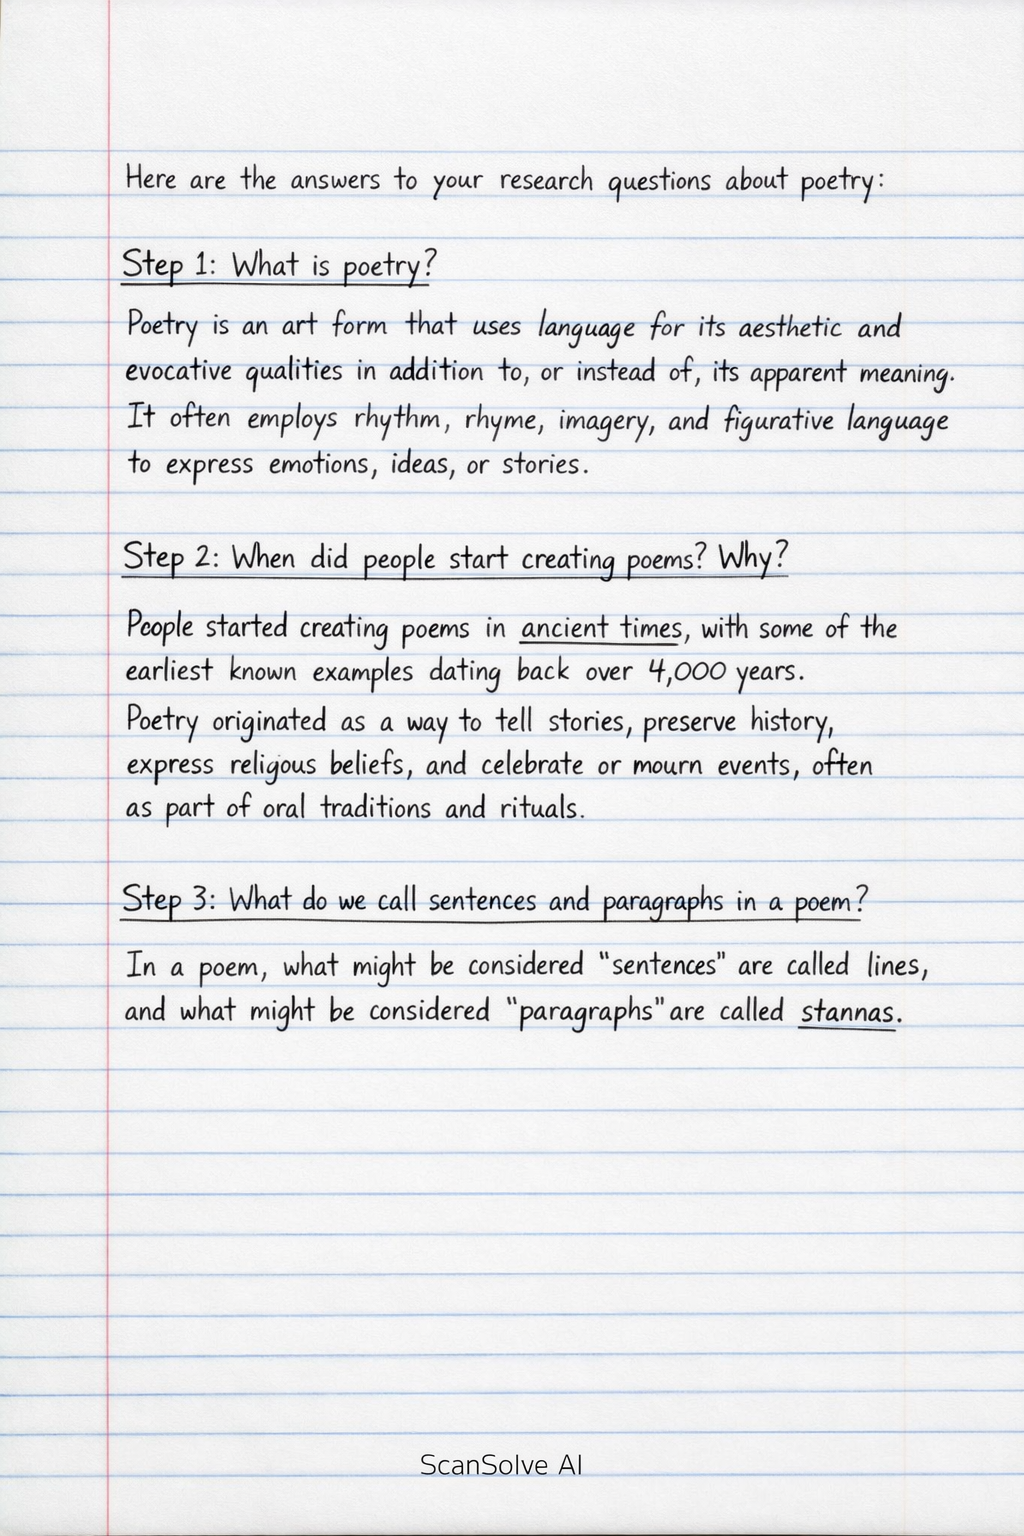 Here are the answers to your research questions about poetry:
Step 1: What is poetry?
Poetry is an art form that uses language for its aesthetic and
evocative qualities in addition to, or instead of, its apparent meaning.
It often employs rhythm, rhyme, imagery, and figurative language
to express emotions, ideas, or stories.
Step 2: When did people start creating poems? Why?
People started creating poems in ancient times, with some of the
earliest known examples dating back over 4,000 years.
Poetry originated as a way to tell stories, preserve history,
express religious beliefs, and celebrate or mourn events, often
as part of oral traditions and rituals.
Step 3: What do we call sentences and paragraphs in a poem?
In a poem, what might be considered "sentences" are called lines,
and what might be considered "paragraphs" are called stannas.
ScanSolve AI